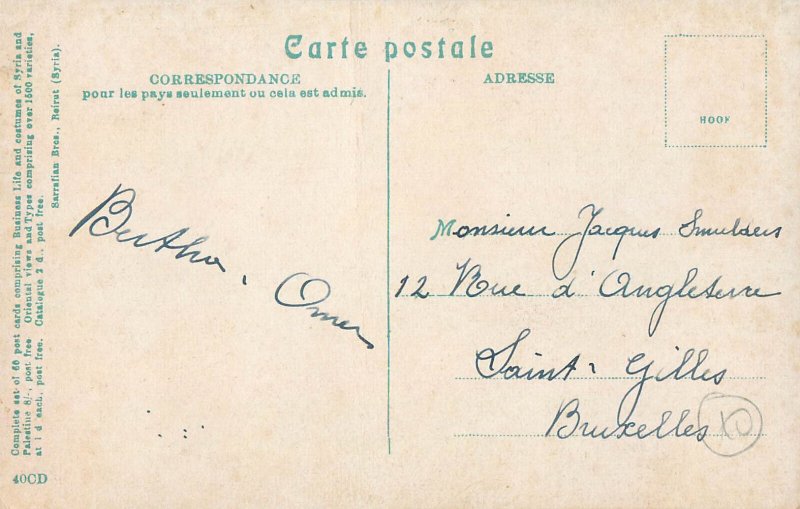 Carte postale
CORRESPONDANCE
pour les pays seulement ou cela est admis.
ADRESSE
HOOF
Complete set of 60 post cards comprising Business Life and costumes of Syria and
Palestine 8/-, post free. Oriental views and Types comprising over 1500 varieties,
at 1 d each, post free. Catalogue 2 d., post free.
Sarrafian Bros., Beirut (Syria).
40CD
Bertha, Omer
Monsieur Jacques Smulders
12 Rue d'Angleterre
Saint-Gilles
Bruxelles